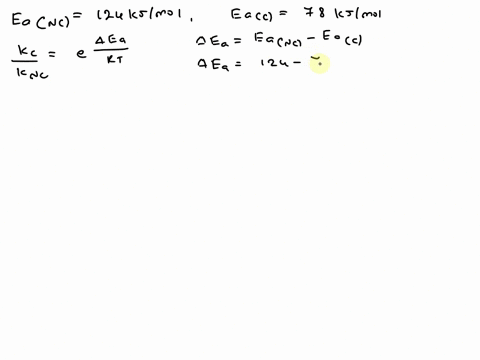 Ea(NC) = 124 kJ/mol, Ea(C) = 78 kJ/mol
kc/kNC = e ΔEa/RT
ΔEa = Ea(NC) - Ea(C)
ΔEa = 124 -